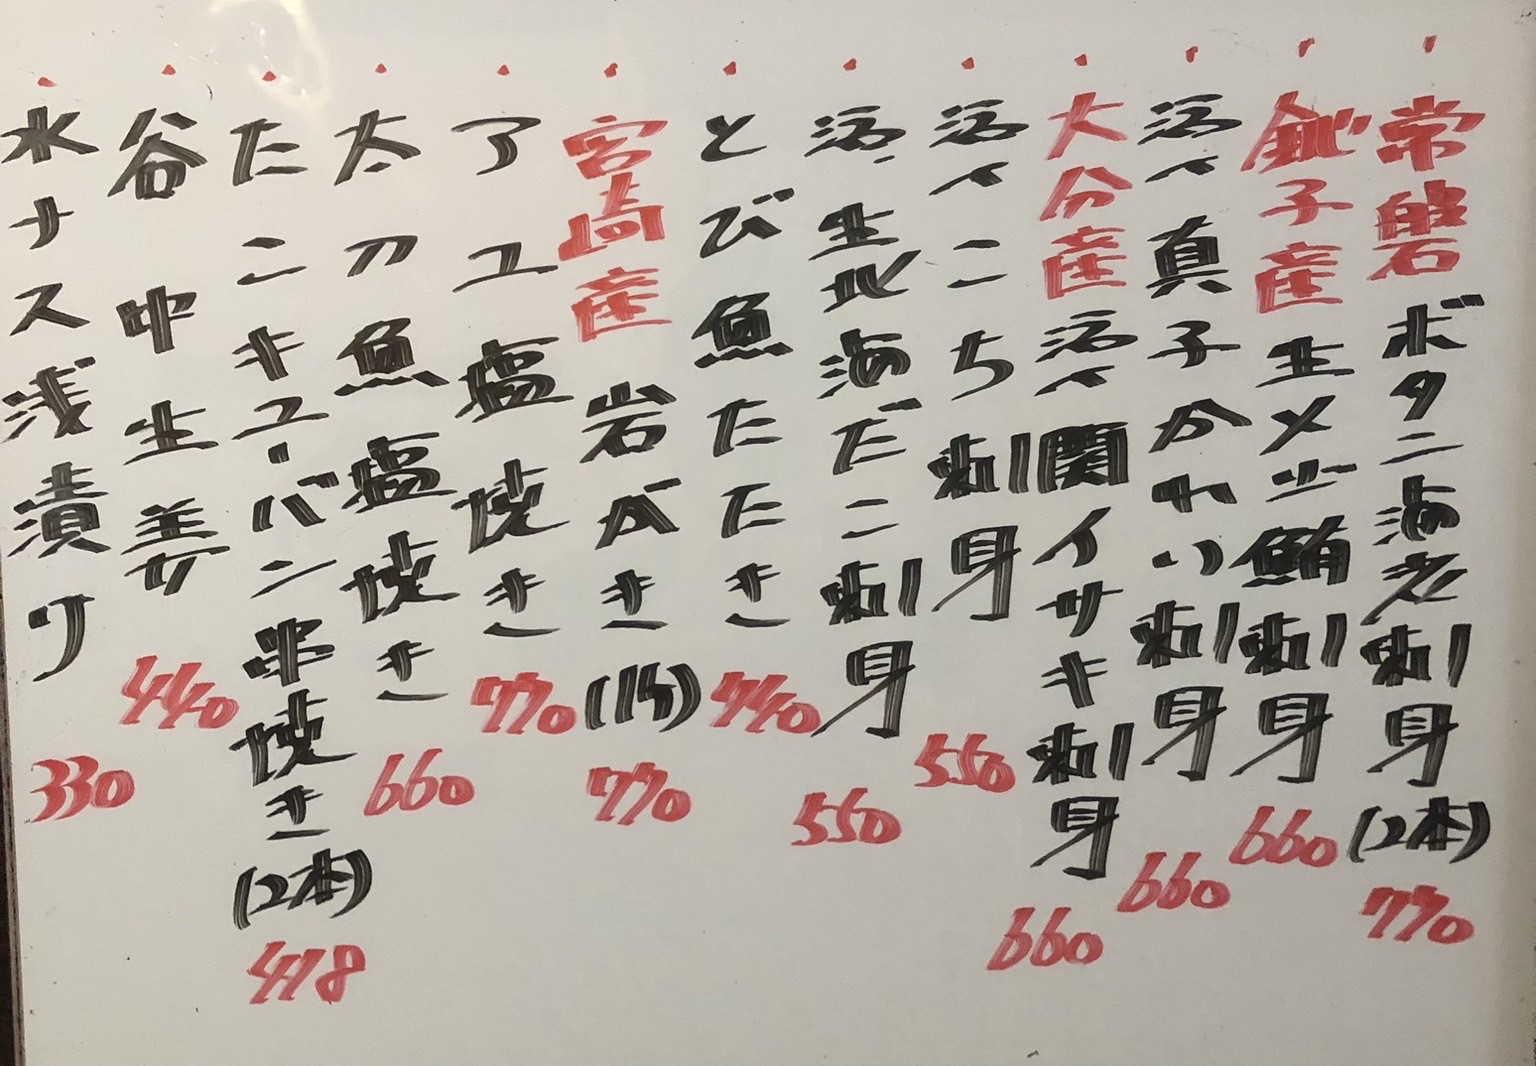 常磐ボタン海老刺身(2本) 770
銚子産生メカ鮪刺身 660
活〆真子かれい刺身 660
大分産活〆関イサキ刺身 660
活〆こち刺身 550
活生北海だこ刺身 550
とび魚たたき 440
宮崎産岩がき(1ヶ) 770
アユ塩焼き 770
太刀魚塩焼き 660
たこキューバン串焼き(2本) 418
谷中生姜 440
水ナス浅漬り 330